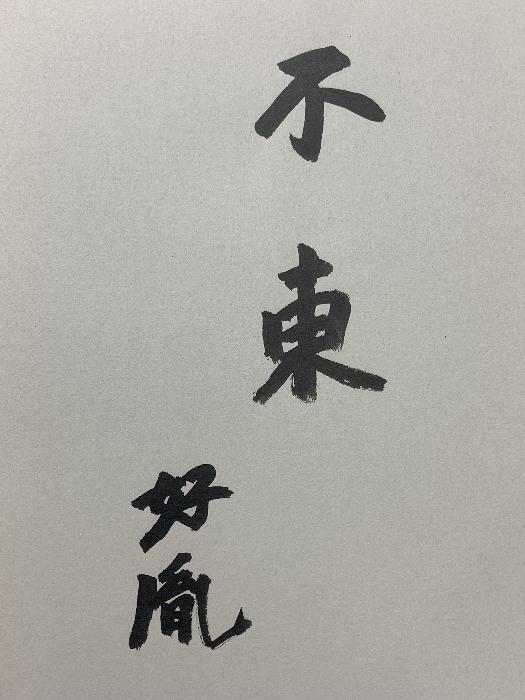 不東
好胤